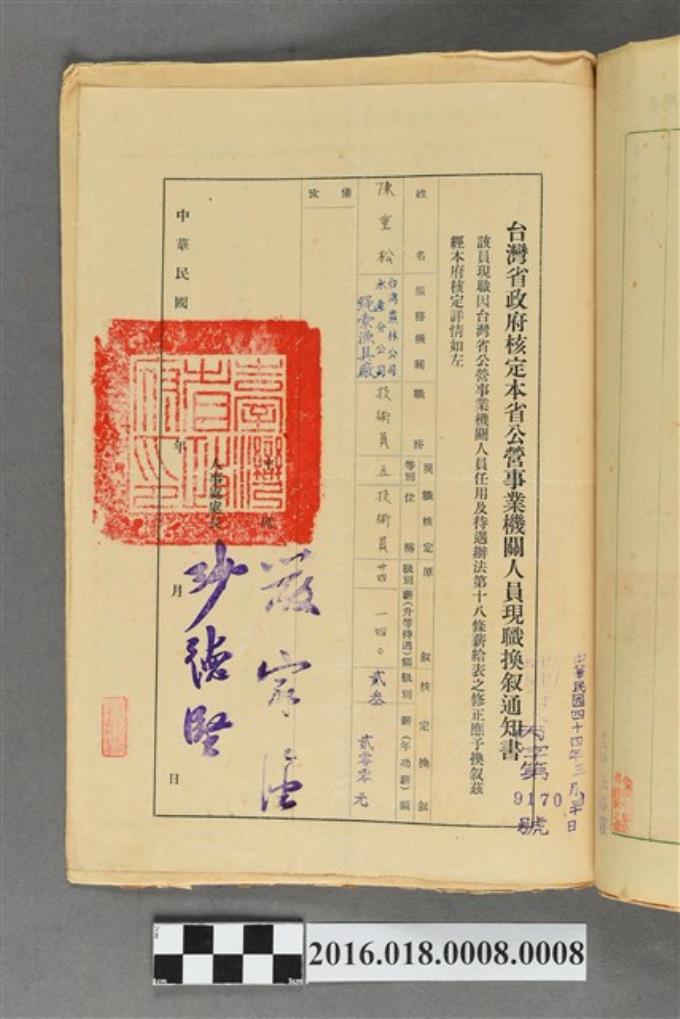 台灣省政府核定本省公營事業機關人員現職換敘通知書
中華民國四十四年三月
日
丙字第
9170
號
該員現職因台灣省公營事業機關人員任用及待遇辦法第十八條薪給表之修正應予換敘茲
經本府核定詳情如左
姓名
服務機關
職務
現職核定
等別
位稱
原敘
級別
薪(升等待遇)額
核定換敘
級別
薪(年功薪)額
陳重松
台灣農林公司
水產分公司
繩索漁具廠
技術員
五
技術員
廿四
一四〇
貳叁
貳零零元
備攷
主席
嚴家淦
人事處處長
沙德堅
臺灣省政府印
中華民國
年
月
日
2016.018.0008.0008